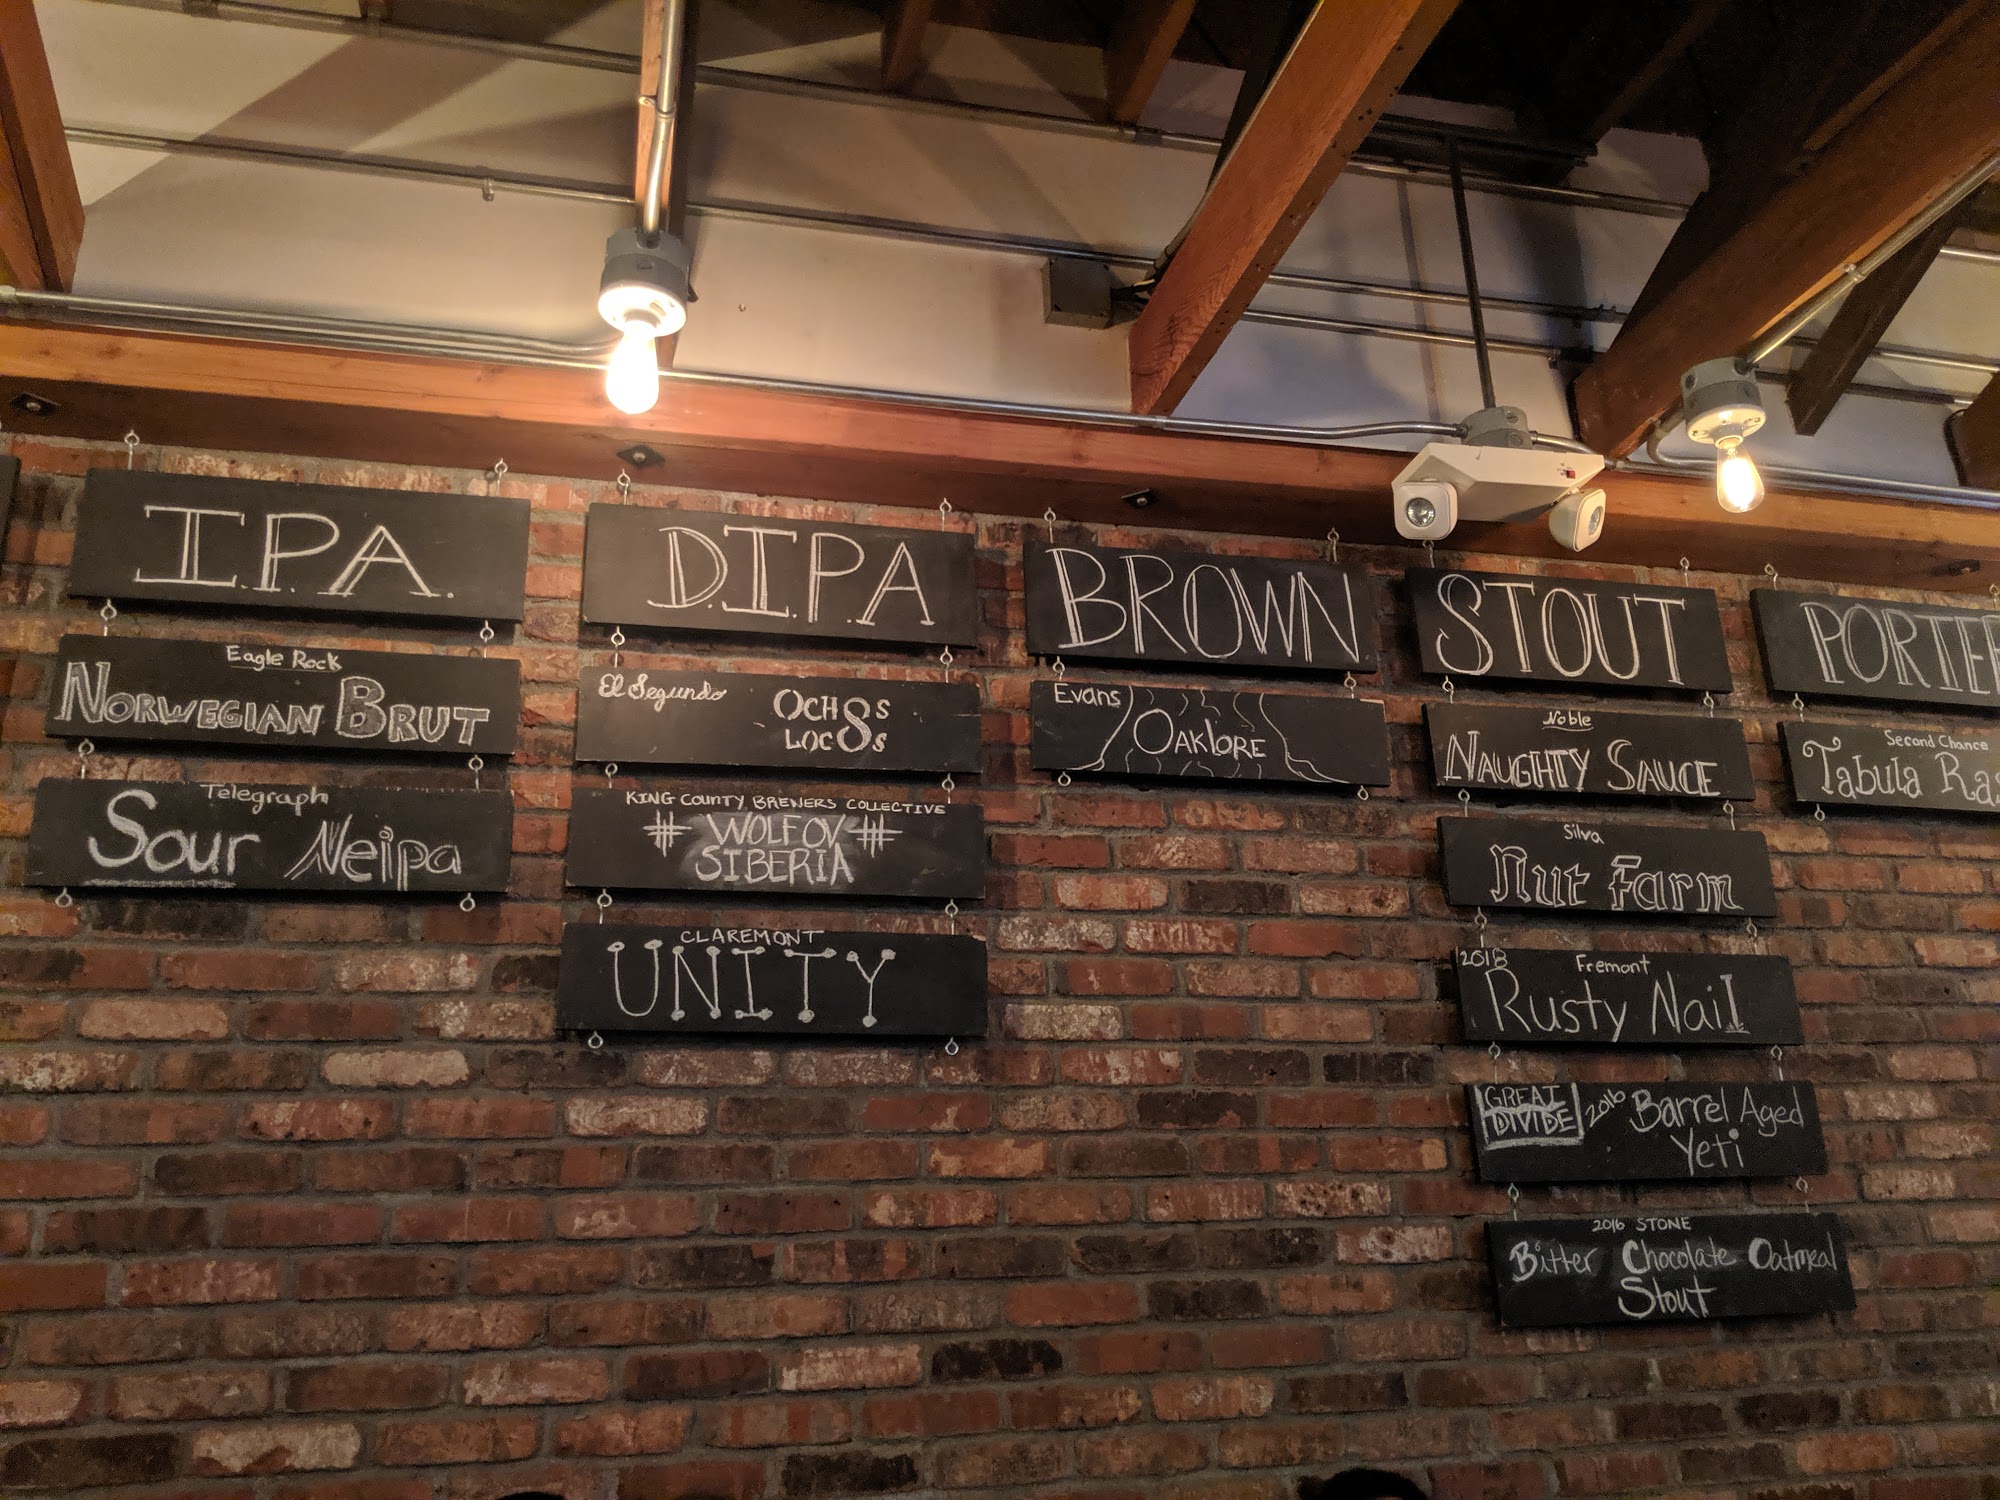 I.P.A.
Eagle Rock
NORWEGIAN BRUT
Telegraph
Sour Neipa
D.I.P.A
El Segundo
OCH8S
LOC8S
KING COUNTY BREWERS COLLECTIVE
# WOLF OV #
SIBERIA
CLAREMONT
UNITY
BROWN
Evans
OAKlORE
STOUT
Noble
NAUGHTY SAUCE
Silva
Nut Farm
2018 Fremont
Rusty Nail
GREAT
DIVIDE
2016 Barrel Aged
Yeti
2016 STONE
Bitter Chocolate Oatmeal
Stout
PORTE
Second Chance
Tabula Ras